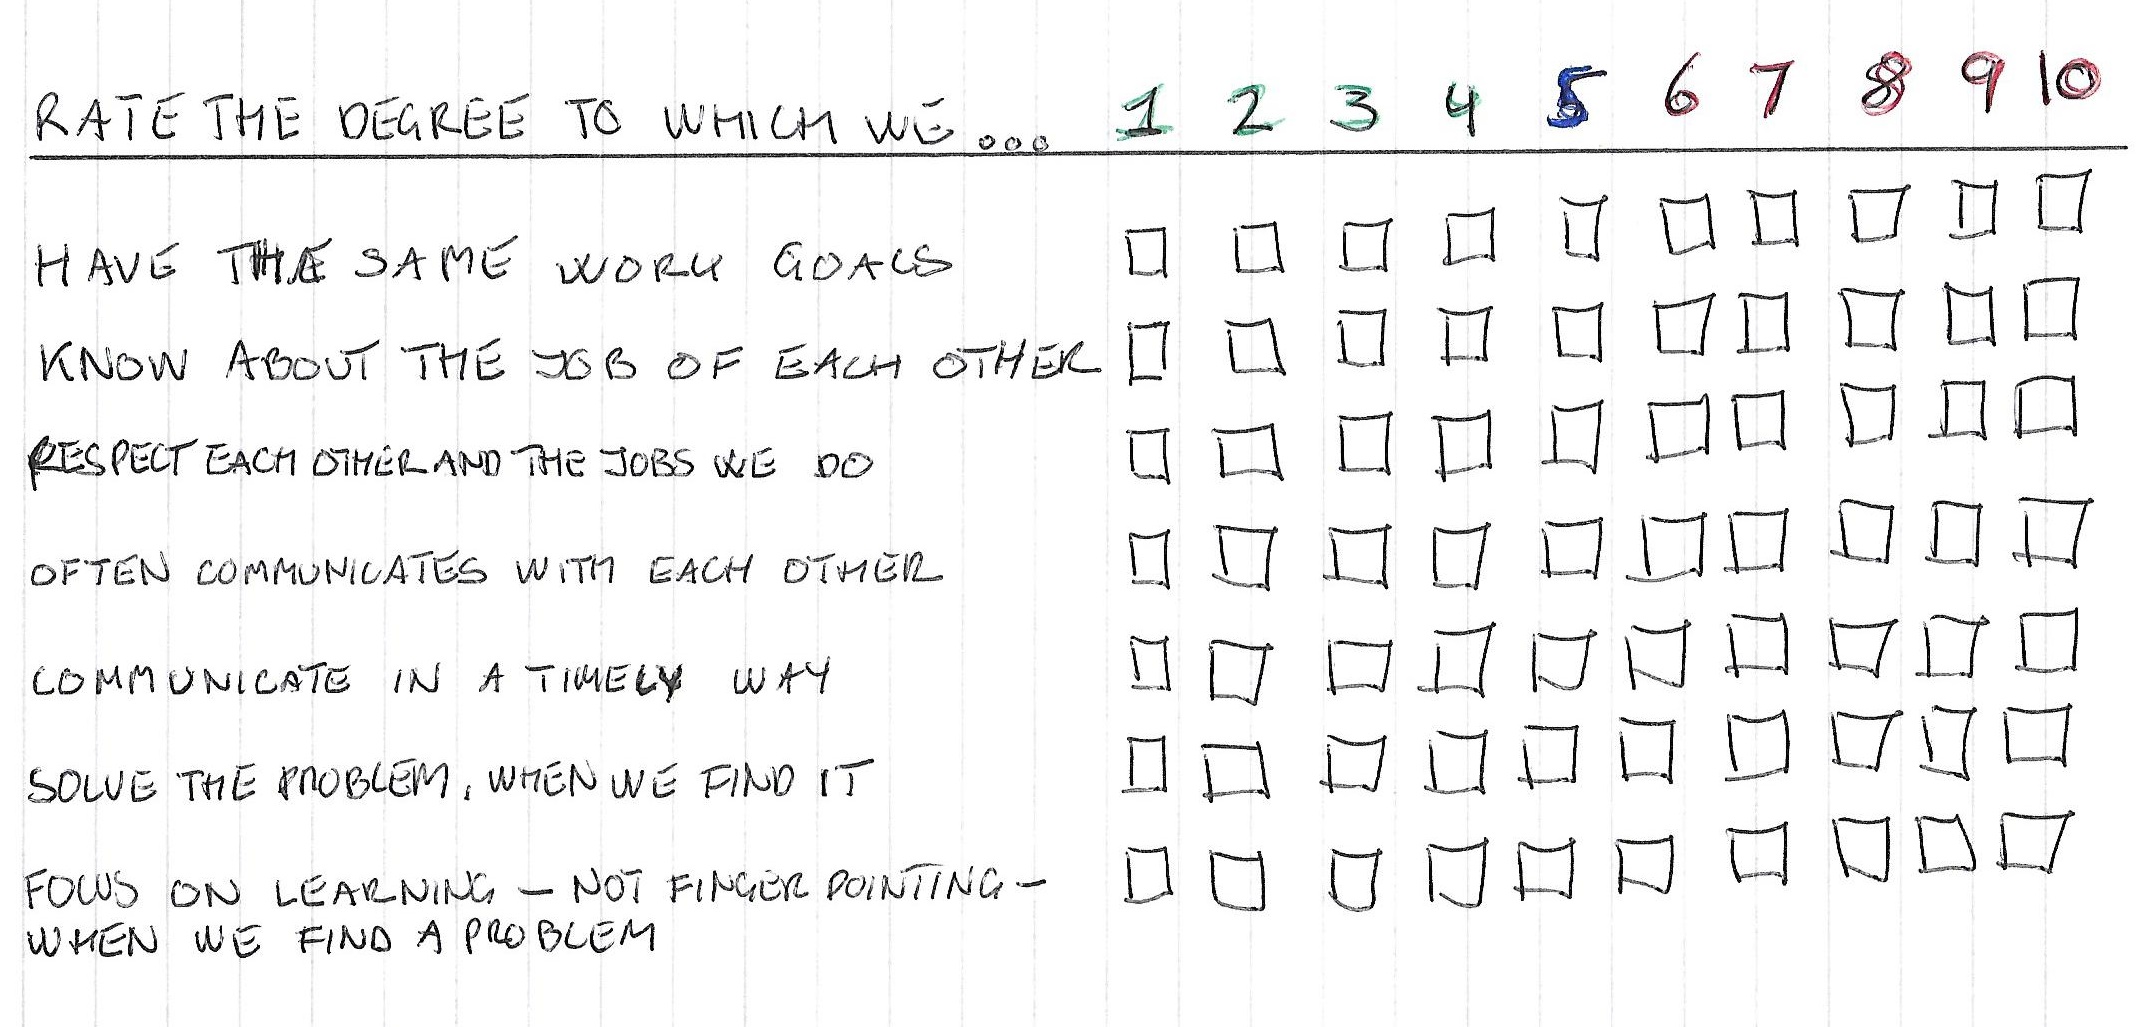 RATE THE DEGREE TO WHICH WE... 1 2 3 4 5 6 7 8 9 10
HAVE THE SAME WORK GOALS
KNOW ABOUT THE JOB OF EACH OTHER
RESPECT EACH OTHER AND THE JOBS WE DO
OFTEN COMMUNICATES WITH EACH OTHER
COMMUNICATE IN A TIMELY WAY
SOLVE THE PROBLEM, WHEN WE FIND IT
FOCUS ON LEARNING – NOT FINGER POINTING –
WHEN WE FIND A PROBLEM